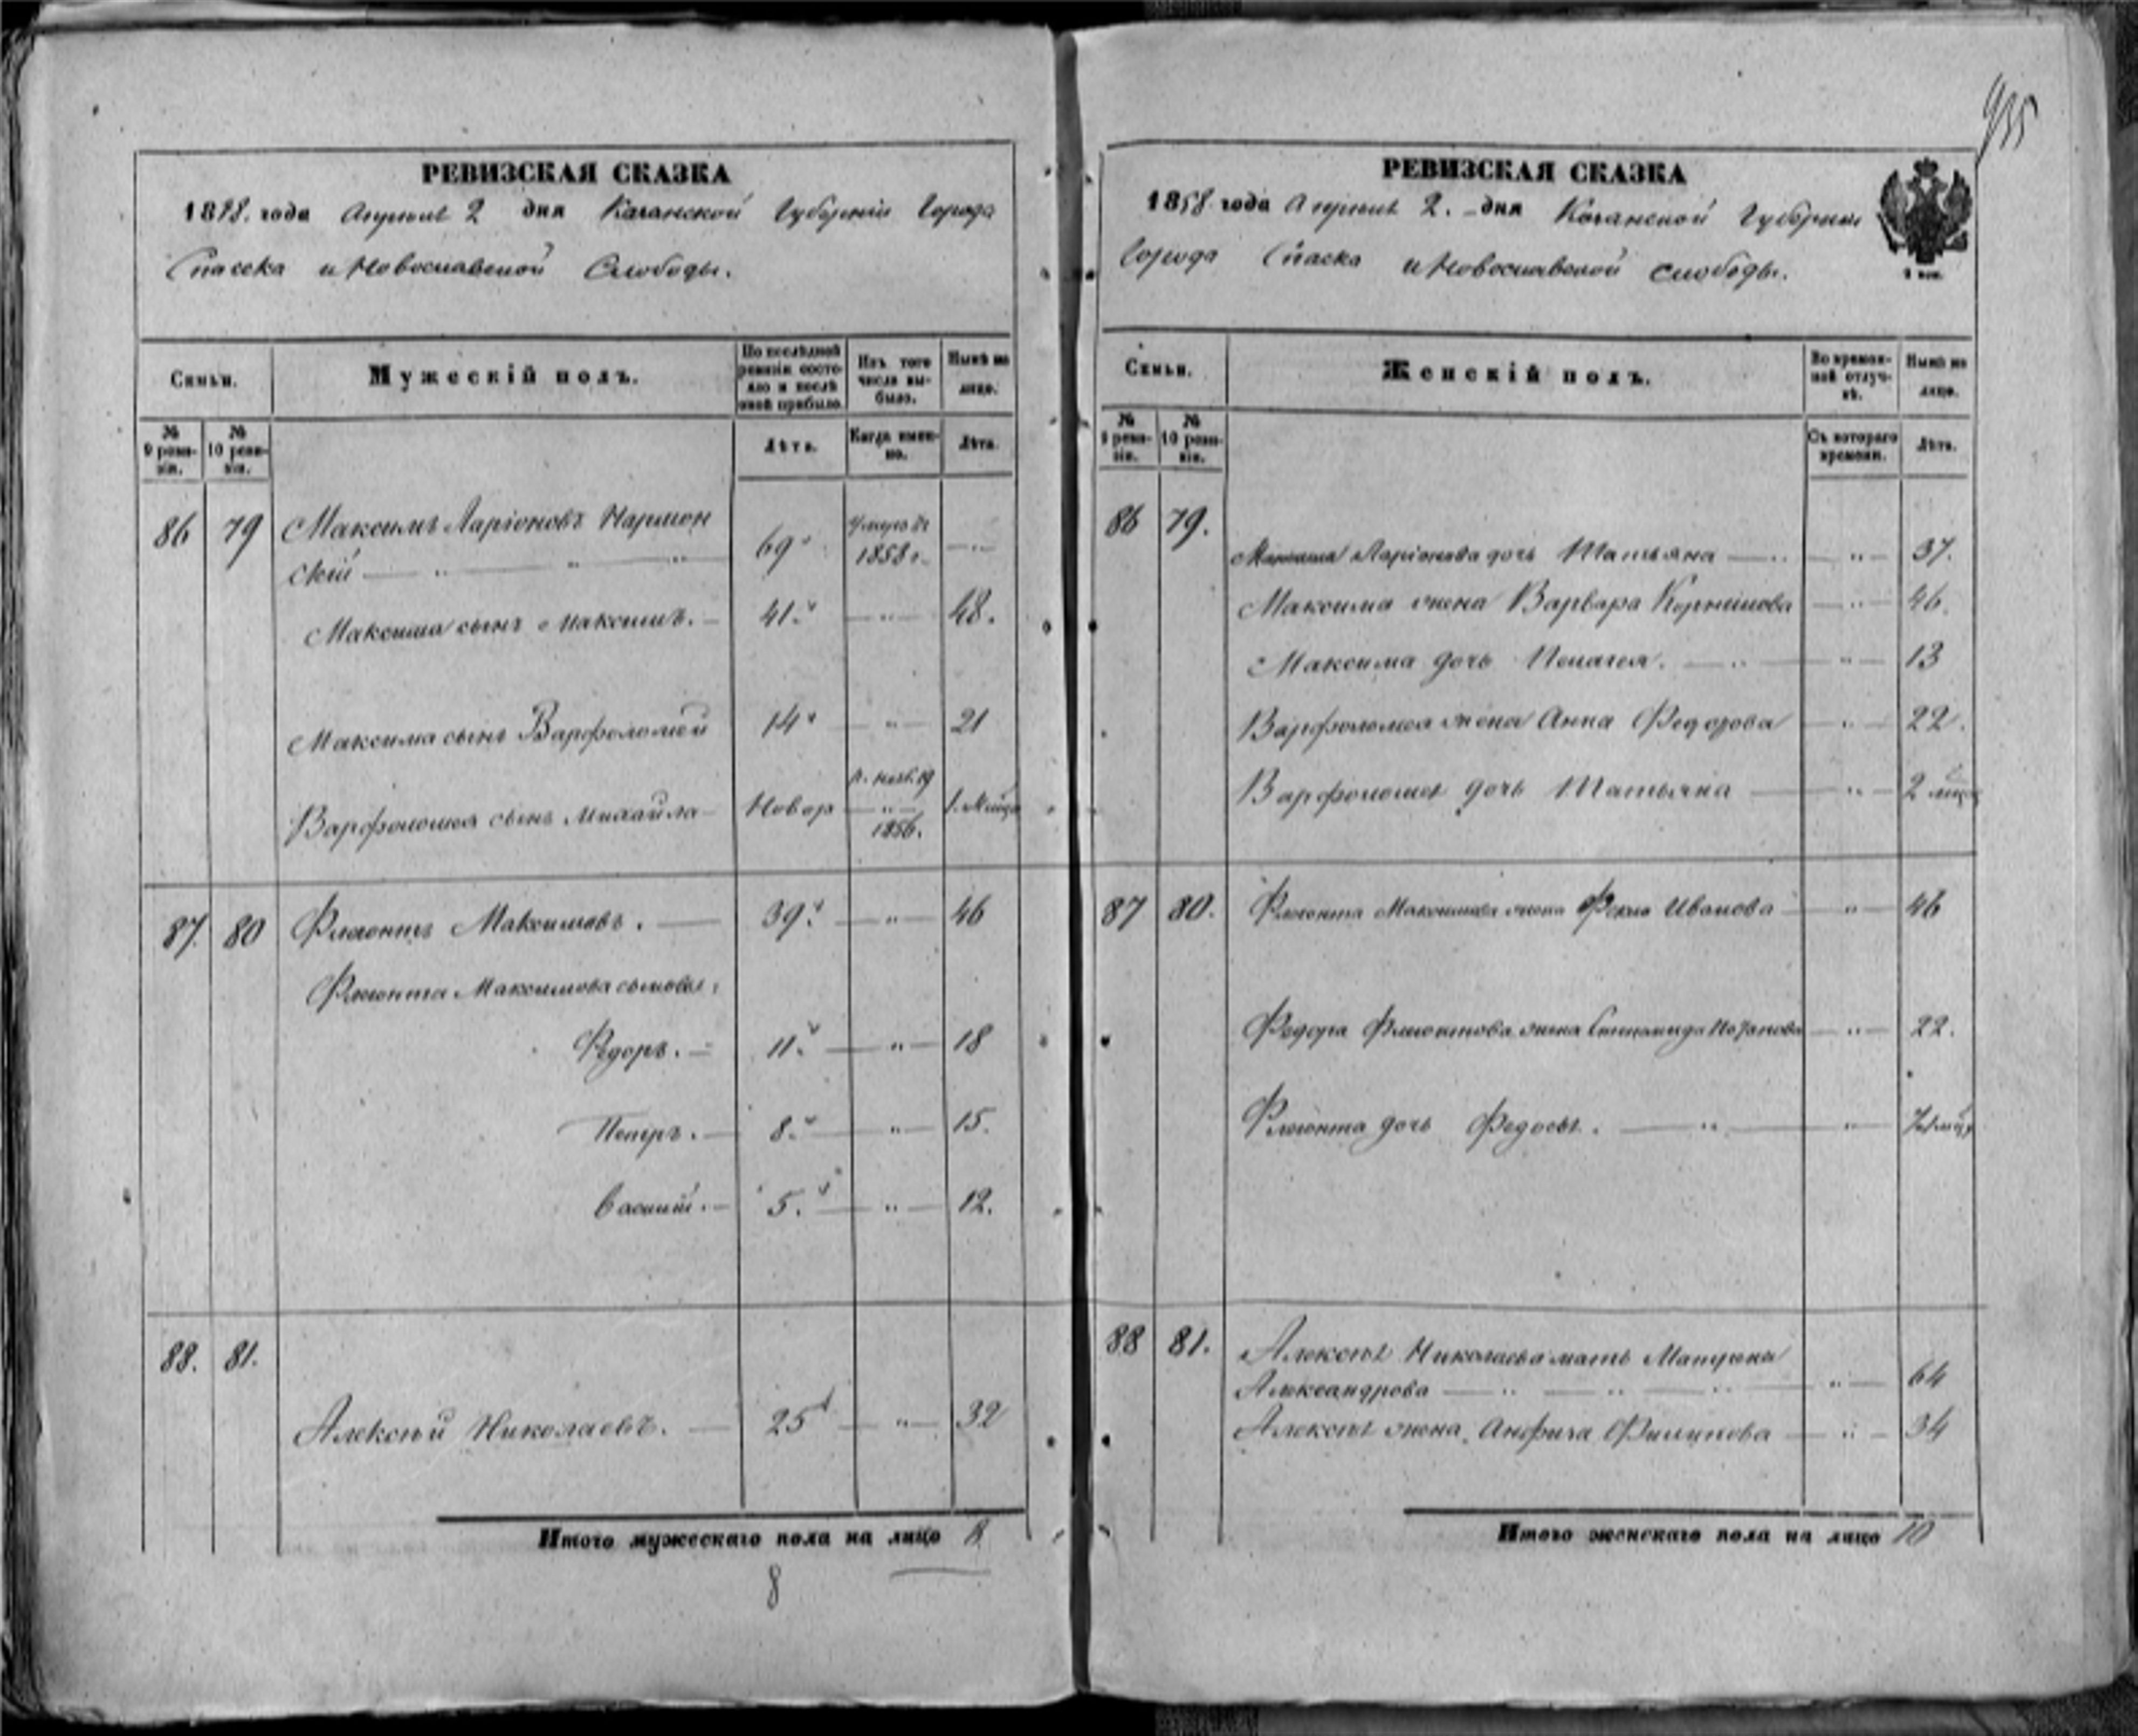 935
РЕВИЗСКАЯ СКАЗКА
1858. года Апреля 2 дня Казанской Губернии Города
Спасска и Новоспавской Слободы.
Семьи.
Мужескій полъ.
По послѣдней ревизіи состояло и послѣ оной прибыло.
Изъ того числа выбыло.
Нынѣ на лицо.
№ 9 ревизіи.
№ 10 ревизіи.
Лѣта.
Когда именно.
Лѣта.
86 79 Максимъ Ларіоновъ Нармон
скій 69 1858 г.
Максима сынъ Максимъ. 41. 48.
Максима сынъ Варфоломей 14 21
Варфоломея сынъ Михайла Новор 19 1856.
87. 80 Филонтъ Максимовъ. 39. 46
Филонта Максимова сыновья:
Федоръ. 11. 18
Петръ. 8. 15.
Василій. 5. 12.
88. 81.
Алексѣй Николаевъ. 25 32
Итого мужескаго пола на лицо 8
8
РЕВИЗСКАЯ СКАЗКА
1858 года Апреля 2. дня Казанской Губернии
Города Спаска и Новоспавской слободы.
Семьи.
Женскій полъ.
Во временной отлучкѣ.
Нынѣ на лицо.
№ 9 ревизіи.
№ 10 ревизіи.
Съ котораго времени.
Лѣта.
86 79.
Ларіонова дочь Татьяна 37.
Максима жена Варвара Корнилова 46.
Максима дочь Пелагея. 13
Варфоломея жена Анна Федорова 22.
Варфоломея дочь Татьяна 2
87 80. Филонта Максимова жена Фекла Иванова 46
Федора Филонтова жена 22.
Филонта дочь Федосья.
88 81. Алексѣя Николаева мать Матрена
Александрова 64
Алексѣя жена Анфиса Филипова 34
Итого женскаго пола на лицо 10